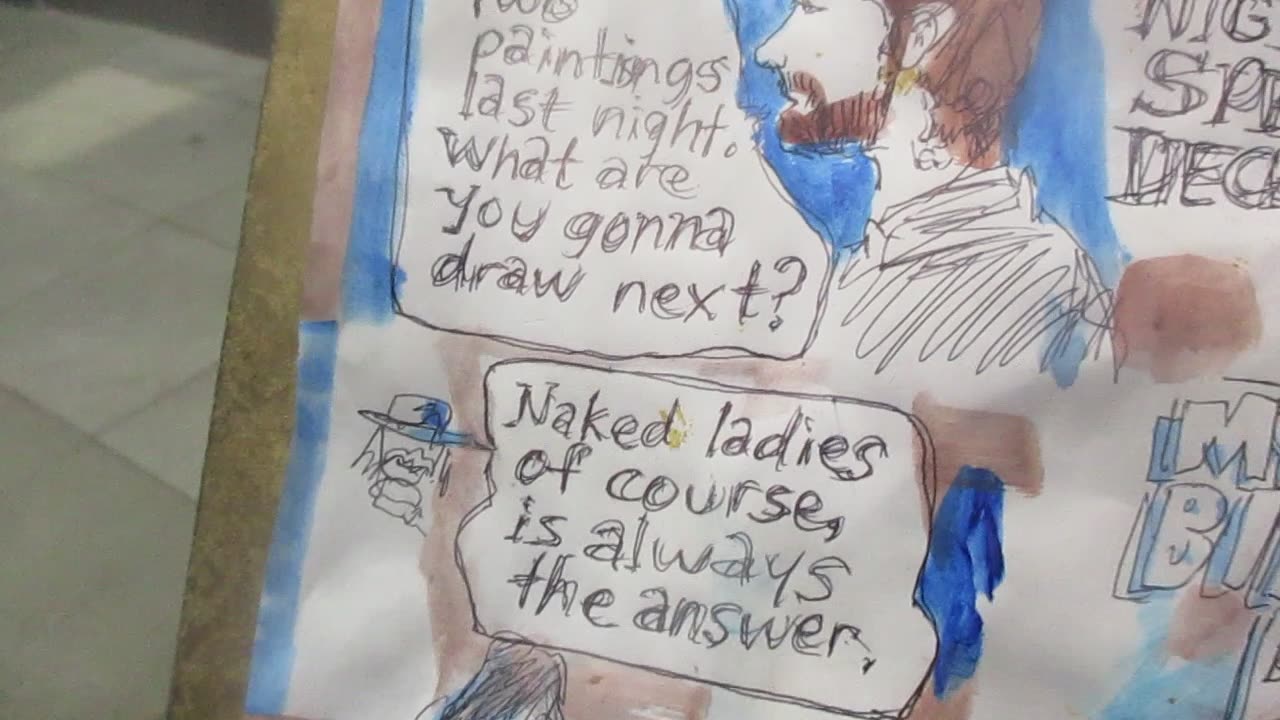 two
paintings
last night.
What are
you gonna
draw next?
Naked ladies
of course,
is always
the answer.